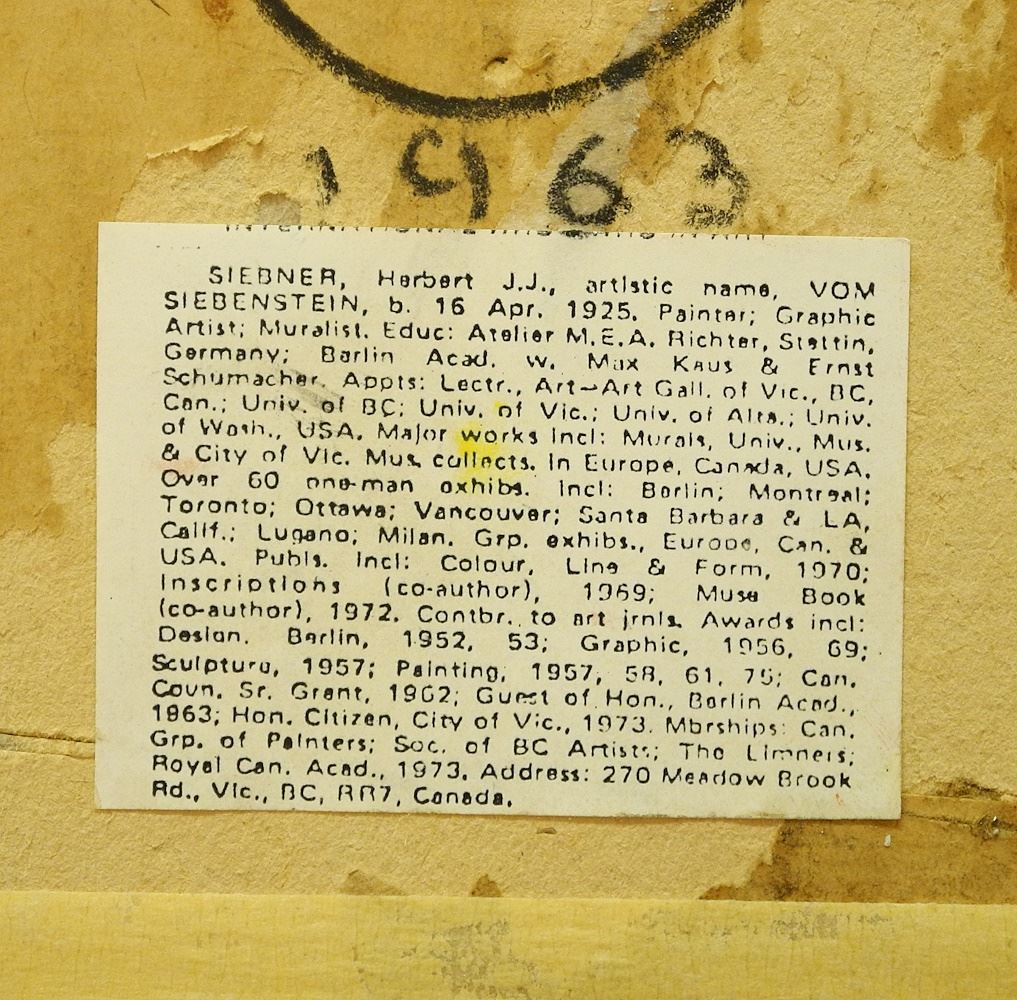 1963
INTERNATIONAL WHO'S WHO IN ART
SIEBNER, Herbert J.J., artistic name, VOM
SIEBENSTEIN, b. 16 Apr. 1925. Painter; Graphic
Artist; Muralist. Educ: Atelier M.E.A. Richter, Stettin,
Germany; Berlin Acad. w. Max Kaus & Ernst
Schumacher. Appts: Lectr., Art-Art Gall. of Vic., BC,
Can.; Univ. of BC; Univ. of Vic.; Univ. of Alta.; Univ.
of Wash., USA. Major works incl: Murals, Univ., Mus.
& City of Vic. Mus. collects. in Europe, Canada, USA.
Over 60 one-man exhibs. incl: Berlin; Montreal;
Toronto; Ottawa; Vancouver; Santa Barbara & LA,
Calif.; Lugano; Milan. Grp. exhibs., Europe, Can. &
USA. Publs. incl: Colour, Line & Form, 1970;
Inscriptions (co-author), 1969; Muse Book
(co-author), 1972. Contbr. to art jrnls. Awards incl:
Design. Berlin, 1952, 53; Graphic, 1956, 69;
Sculpture, 1957; Painting, 1957, 58, 61, 75; Can.
Coun. Sr. Grant, 1962; Guest of Hon., Berlin Acad.,
1963; Hon. Citizen, City of Vic., 1973. Mbrships: Can.
Grp. of Painters; Soc. of BC Artists; The Limners;
Royal Can. Acad., 1973. Address: 270 Meadow Brook
Rd., Vic., BC, RR7, Canada.